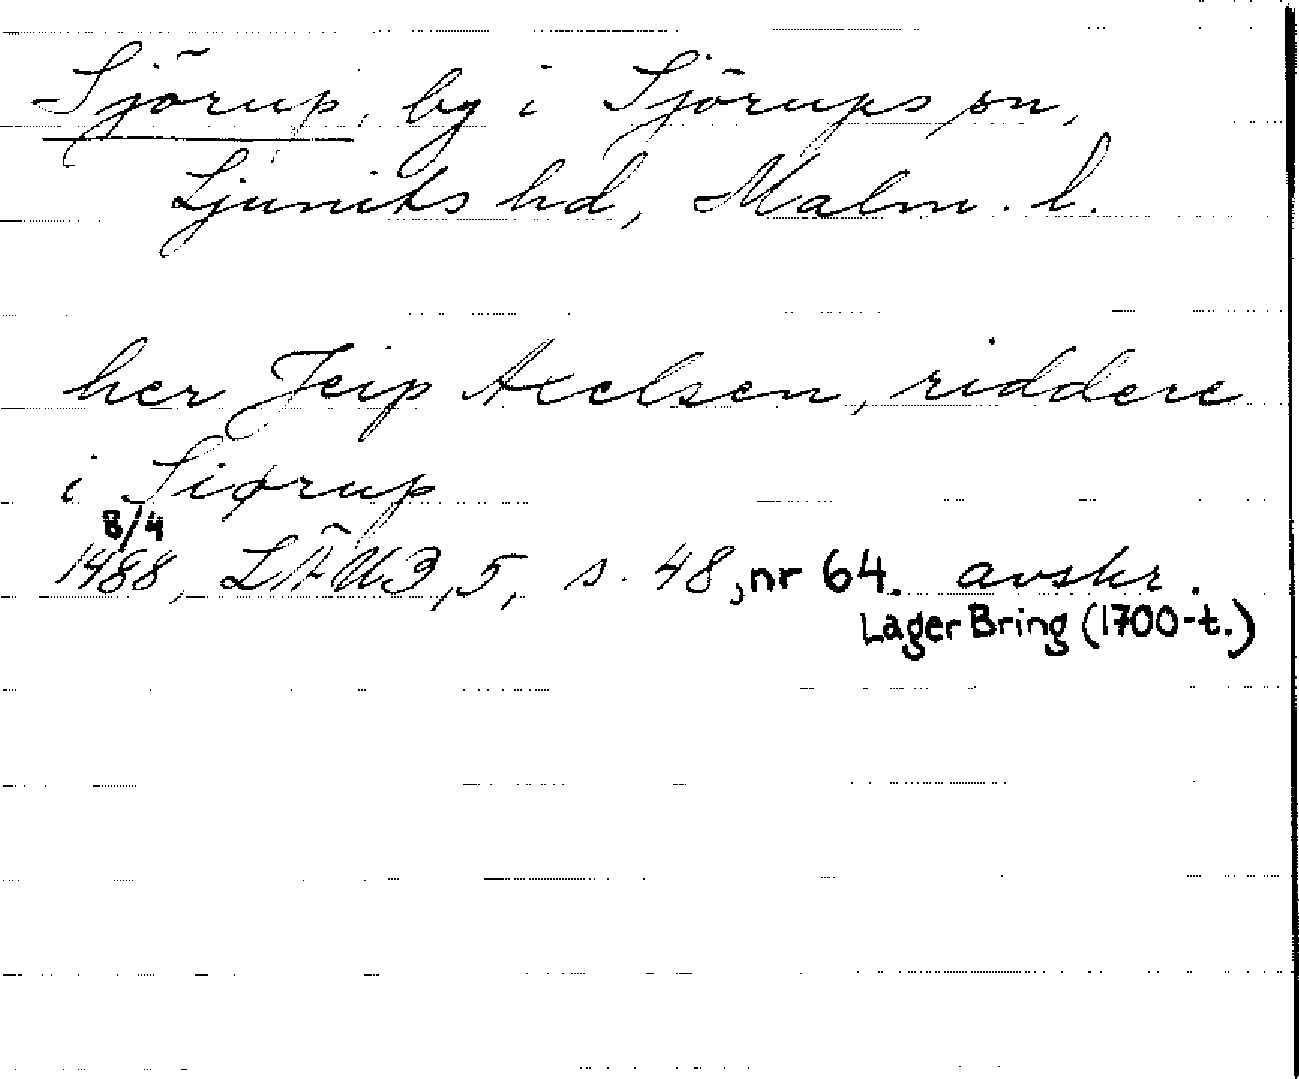 Sjörup, by i Sjörups sn,
Ljunits hd, Malm. l.
her Jeip Axelsen, riddere
i Siørup
8/4
1488, LÄU3,5, s. 48, nr 64. avskr.
LagerBring (1700-t.)